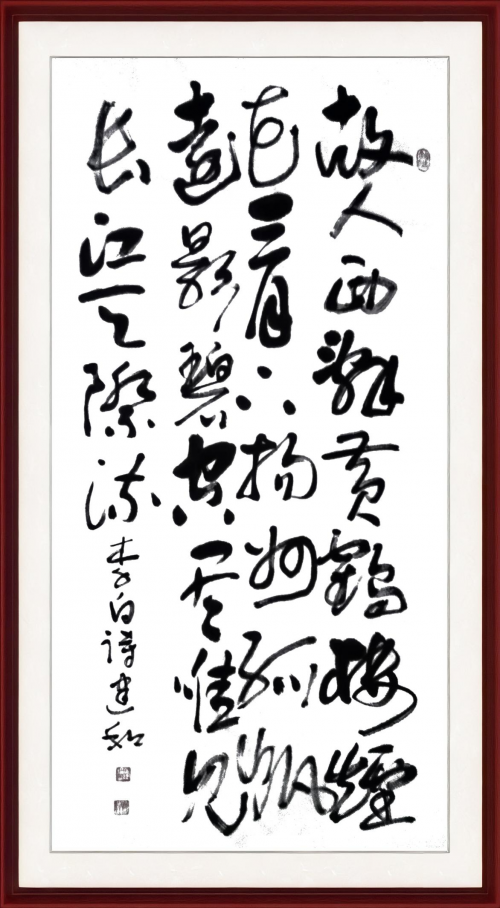 故人西辭黄鶴楼煙
花三月下揚州孤帆
遠影碧空尽惟見
長江天際流李白詩建